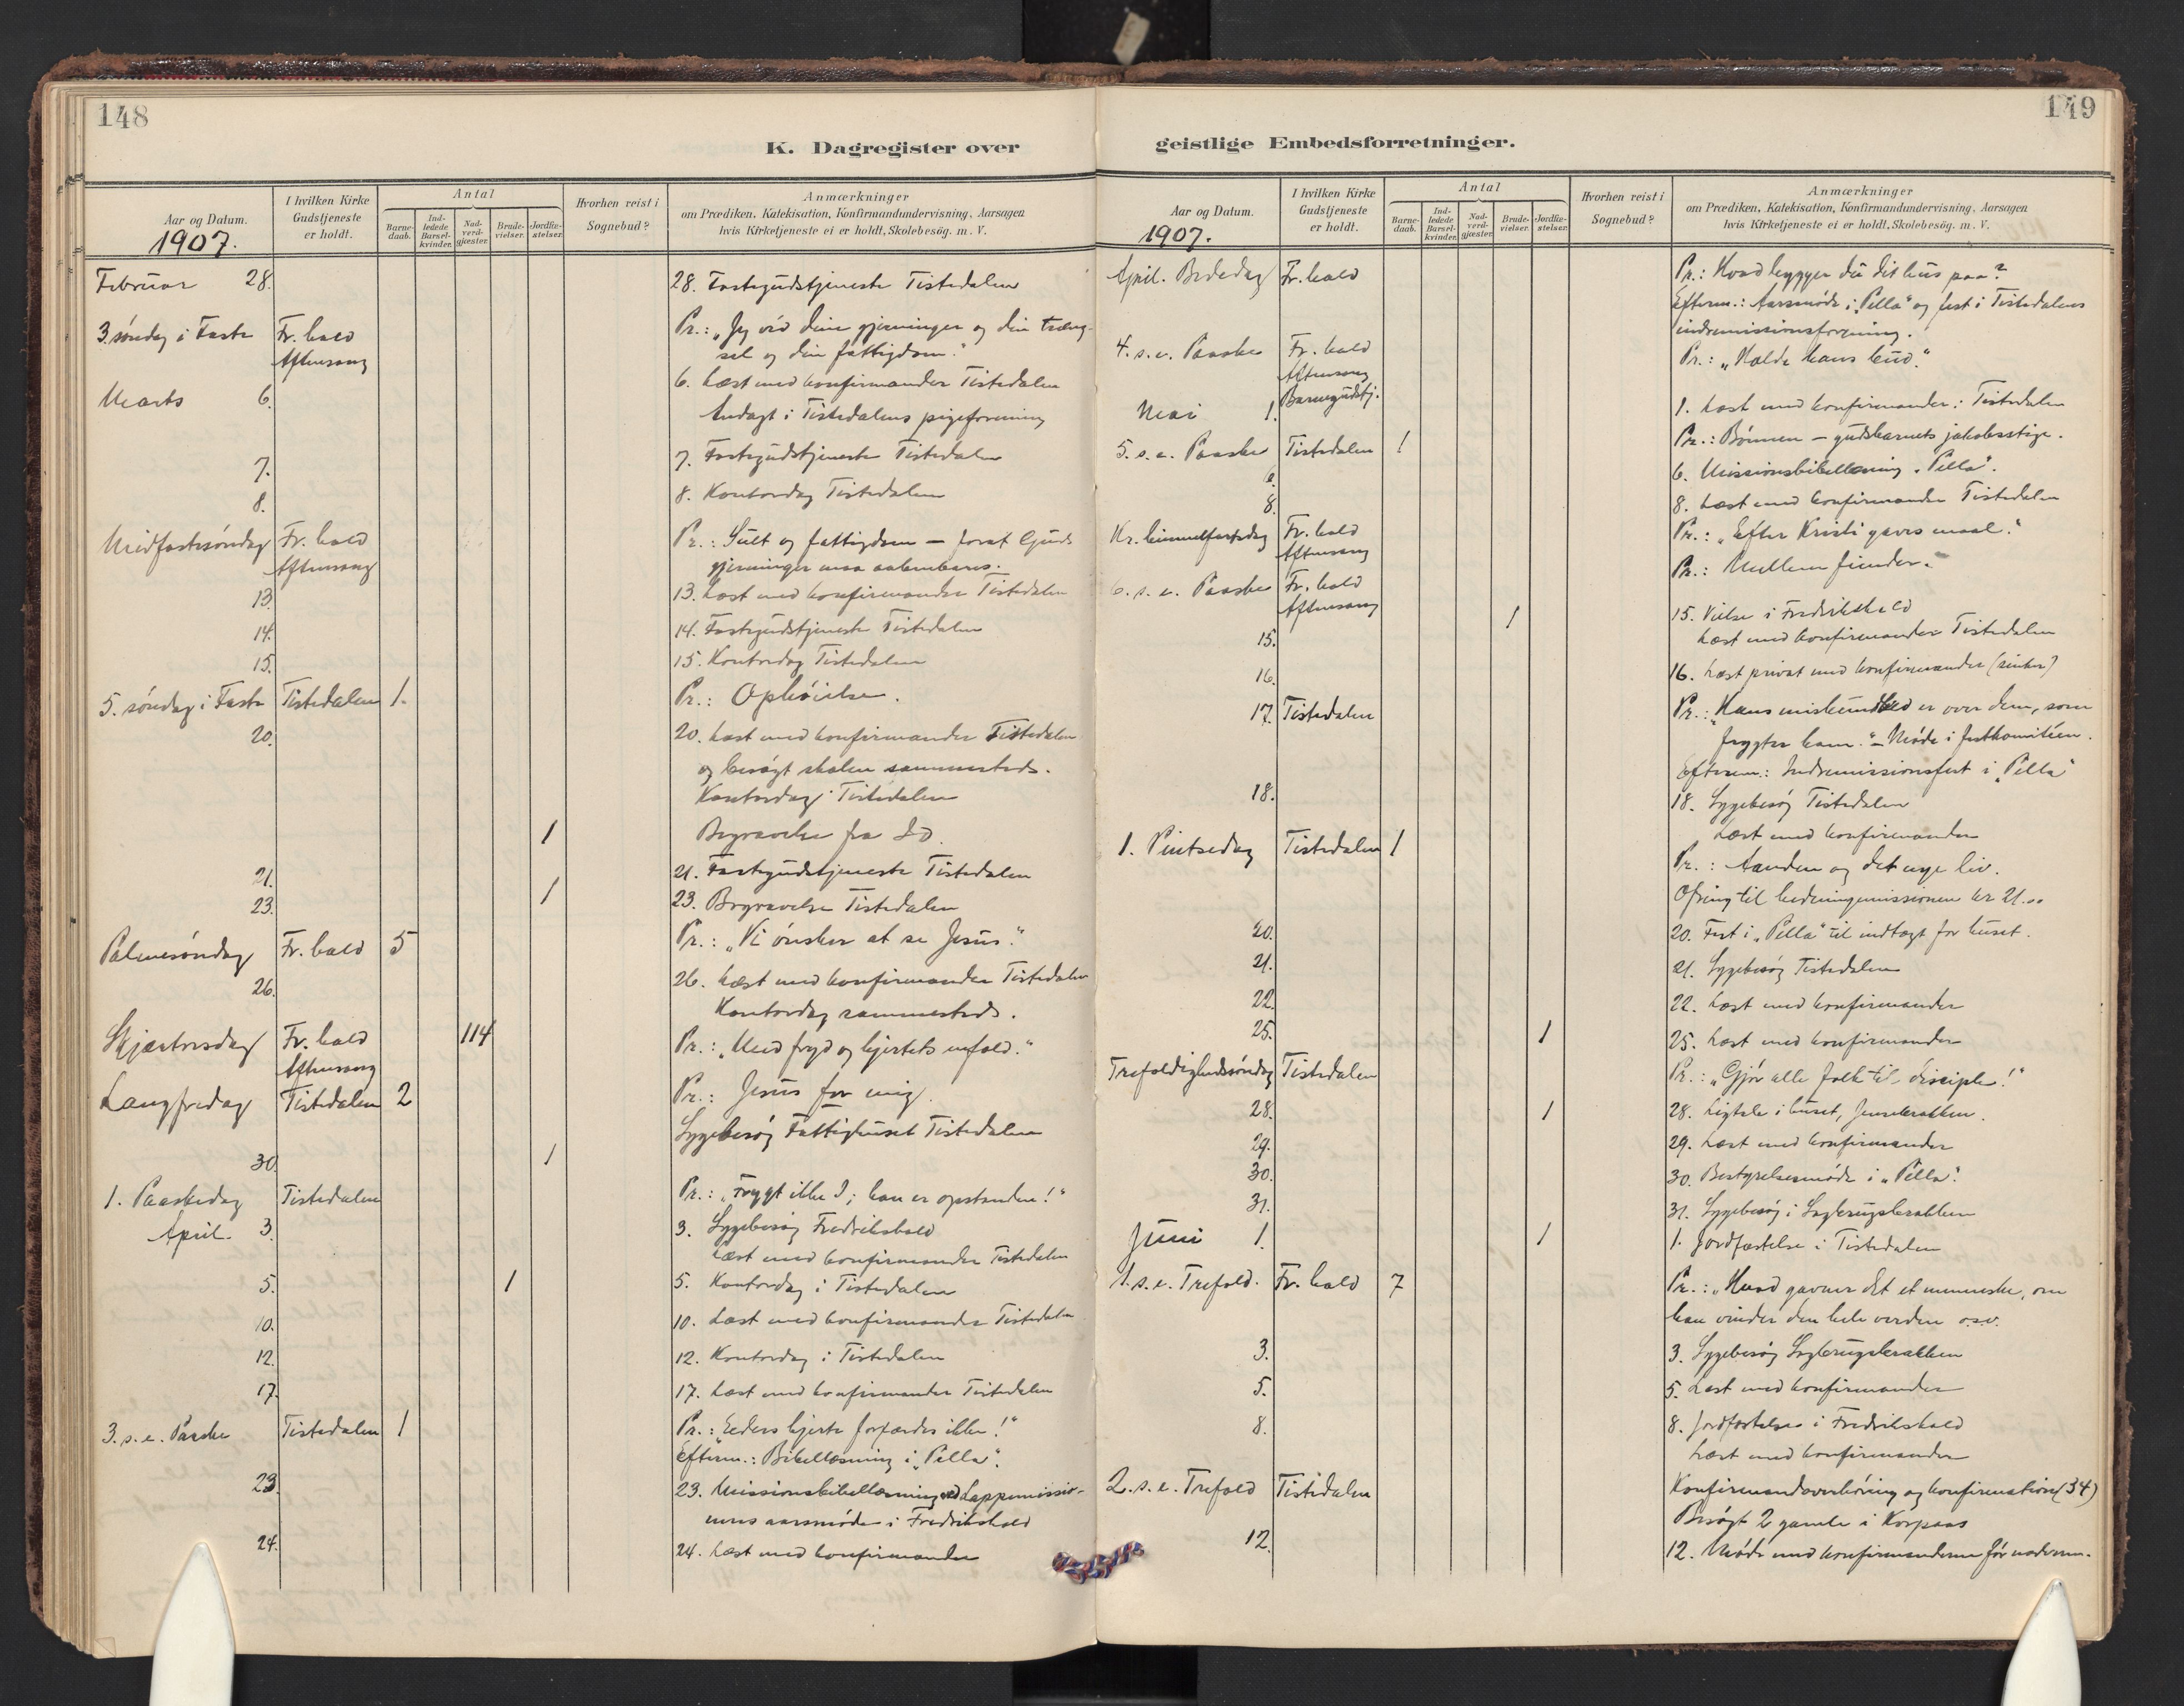 148
K. Dagregister over
Aar og Datum.
1907.
I hvilken Kirke
Gudstjeneste
er holdt.
Antal
Barne-
daab.
Ind-
ledede
Barsel-
kvinder.
Nad-
verd-
gjæster.
Brude-
vielser.
Jordfæ-
stelser.
Hvorhen reist i
Sognebud?
Anmærkninger
om Prædiken, Katekisation, Konfirmandundervisning, Aarsagen
hvis Kirketjeneste ei er holdt, Skolebesög. m. V.
Februar 28. 28. Fastegudstjeneste Tistedalen
3. søndag i Faste Fr.hald Pr.: „Jeg véd dine gjerninger og din træng-
Aftensang sel og din fattigdom."
Marts 6. 6. Læst med konfirmander Tistedalen
Andagt i Tistedalens pigeforening
7. 7. Fastegudstjeneste Tistedalen
8. 8. Kontordag Tistedalen
Midfastesøndag Fr.hald Pr.: Sult og fattigdom – forat Guds
Aftensang gjerninger maa aabenbares.
13. 13. Læst med konfirmander Tistedalen
14. 14. Fastegudstjeneste Tistedalen
15. 15. Kontordag Tistedalen
5. søndag i Faste Tistedalen 1. Pr.: Ophøielse.
20. 20. Læst med konfirmander Tistedalen
og besøgt skolen sammesteds.
Kontordag Tistedalen
1 Begravelse fra
21. 21. Fastegudstjeneste Tistedalen
23. 1 23. Begravelse Tistedalen
Palmesøndag Fr.hald 5 Pr.: „Vi ønsker at se Jesus."
26. 26. Læst med konfirmander Tistedalen
Kontordag sammesteds.
Skjærtorsdag Fr.hald 114 Pr.: „Med fryd og hjertets enfold."
Aftensang
Langfredag Tistedalen 2 Pr.: Jesus for mig.
Sygebesøg Fattighuset Tistedalen
30. 1
1. Paaskedag Tistedalen Pr.: „Frygt ikke I; han er opstanden!"
April. 3. 3. Sygebesøg Fredrikshald
Læst med konfirmander Tistedalen
5. 1 5. Kontordag i Tistedalen
10. 10. Læst med konfirmander Tistedalen
12. 12. Kontordag i Tistedalen
17. 17. Læst med konfirmander Tistedalen
3. s. e. Paaske Tistedalen 1 Pr.: „Eders hjerte forfærdes ikke!"
Efterm.: Bibellæsning i „Pella".
23. 23. Missionsbibellæsning ved Lappemissio-
nens aarsmøde i Fredrikshald
24. 24. Læst med konfirmander
149
geistlige Embedsforretninger.
Aar og Datum.
1907.
I hvilken Kirke
Gudstjeneste
er holdt.
Antal
Barne-
daab.
Ind-
ledede
Barsel-
kvinder.
Nad-
verd-
gjæster.
Brude-
vielser.
Jordfæ-
stelser.
Hvorhen reist i
Sognebud?
Anmærkninger
om Prædiken, Katekisation, Konfirmandundervisning, Aarsagen
hvis Kirketjeneste ei er holdt, Skolebesög. m. V.
April. Bededag Fr.hald Pr.: Hvad bygger du dit hus paa?
Efterm.: Aarsmøde i „Pella" og fest i Tistedalens
indremissionsforening.
4. s. e. Paaske Fr.hald Pr.: „Holde hans bud."
Aftensang
Barnegudstj.
Mai 1. 1. Læst med konfirmander: Tistedalen
5. s. e. Paaske Tistedalen 1 Pr.: Bønnen – gudsbarnets jakobsstige.
6. 6. Missionsbibellæsning „Pella".
8. 8. Læst med konfirmander Tistedalen
Kr. himmelfartsdag Fr.hald Pr.: „Efter Kristi gaves maal."
Aftensang
6. s. e. Paaske Fr.hald Pr.: Mellem fiender.
Aftensang
15. 1 15. Vielse i Fredrikshald
Læst med konfirmander Tistedalen
16. 16. Læst privat med konfirmander
17. Tistedalen Pr.: „Hans miskundhed er over dem, som
frygter ham." – Møde i festkomitéen.
Efterm.: Indremissionsfest i „Pella"
18. 18. Sygebesøg Tistedalen
Læst med konfirmander
1. Pintsedag Tistedalen 1 Pr.: Aanden og det nye liv.
Ofring til hedningemissionen kr 21.00
20. 20. Fest i „Pella" til indtægt for huset.
21. 21. Sygebesøg Tistedalen
22. 22. Læst med konfirmander
25. 1 25. Læst med konfirmander
Trefoldighedssøndag Tistedalen Pr.: „Gjør alle folk til disciple!"
28. 1 28. Ligtale i huset,
29. 29. Læst med konfirmander
30. 30. Bestyrelsesmøde i „Pella".
31. 31. Sygebesøg i Sagbrugsbrakken
Juni 1. 1 1. Jordfæstelse i Tistedalen
1. s. e. Trefold. Fr.hald 7 Pr.: „Hvad gavner det et menneske, om
han vinder den hele verden o.s.v.
3. 3. Sygebesøg Sagbrugsbrakken
5. 5. Læst med konfirmander
8. 8. Jordfæstelse i Fredrikshald
Læst med konfirmander
2. s. e. Trefold Tistedalen Konfirmandoverhøring og konfirmation (34)
Besøgt 2 gamle i Korpaas
12. 12. Møde med konfirmanderne før nadveren.